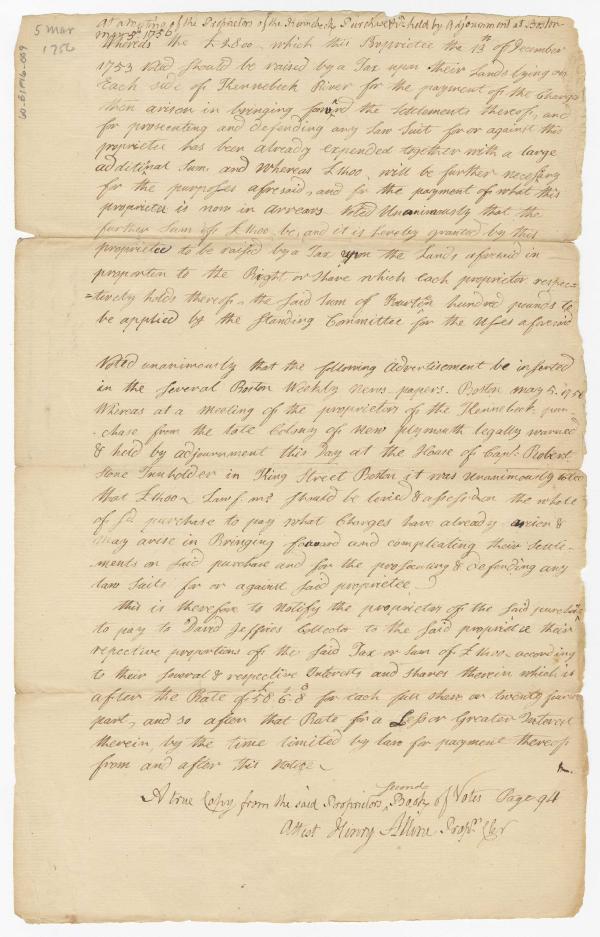 5 Mar
1756
at a meeting of the Proprietors of the Kennebeck Purchase &c held by Adjournment at Boston
may 5th 1756
Whereas the £2800 which this Proprietee the 13th of December
1753 Voted should be raised by a Tax upon their Lands lying on
Each side of Kennebeck River for the payment of the Charges
then arisen in bringing forward the Settlements thereof, and
for prosecuting and defending any Law Suit for or against this
proprietee has been already expended together with a large
additional Sum. and Whereas £1400 will be further necessary
for the purposes aforesaid, and for the payment of what this
proprietee is now in arrears Voted Unanimously that the
further Sum of £1400 be, and it is hereby granted by this
proprietee to be raised by a Tax upon the Lands aforesaid in
proportion to the Right or Share which each proprietor respec=
=tively holds thereof, the said Sum of Fourteen hundred pounds to
be applied by the Standing Committee for the Uses aforesaid
Voted unanimously that the following Advertisement be inserted
in the several Boston Weekly News-papers. Boston may 5. 1756
Whereas at a meeting of the proprietors of the Kennebeck pur-
-chase from the late Colony of New plymouth legally warned
& held by adjournment this Day at the House of Capt. Robert
Stone Innholder in King Street Boston it was Unanimously voted
that £1400 Lawf. mo. should be levied & assessed on the whole
of sd. purchase to pay what Charges have already arisen &
may arise in Bringing forward and compleating their Settle-
-ments on said purchase and for the prosecuting & defending any
law Suits for or against said proprietee.
this is therefore to Notify the proprietors of the said purchase
to pay to David Jeffries Collector to the said proprietee their
repective proportions of the said Tax or Sum of £1400 according
to their several & respective Interests and shares therein which is
after the Rate of £58.6.8 for each full share or twenty fourth
part, and so after that Rate for a Less or Greater Interest
therein by the time limited by law for payment thereof
from and after this Notice
A true Copy from the said Proprietors second Book of Votes Page 94
Attest Henry Alline Propr. Cler